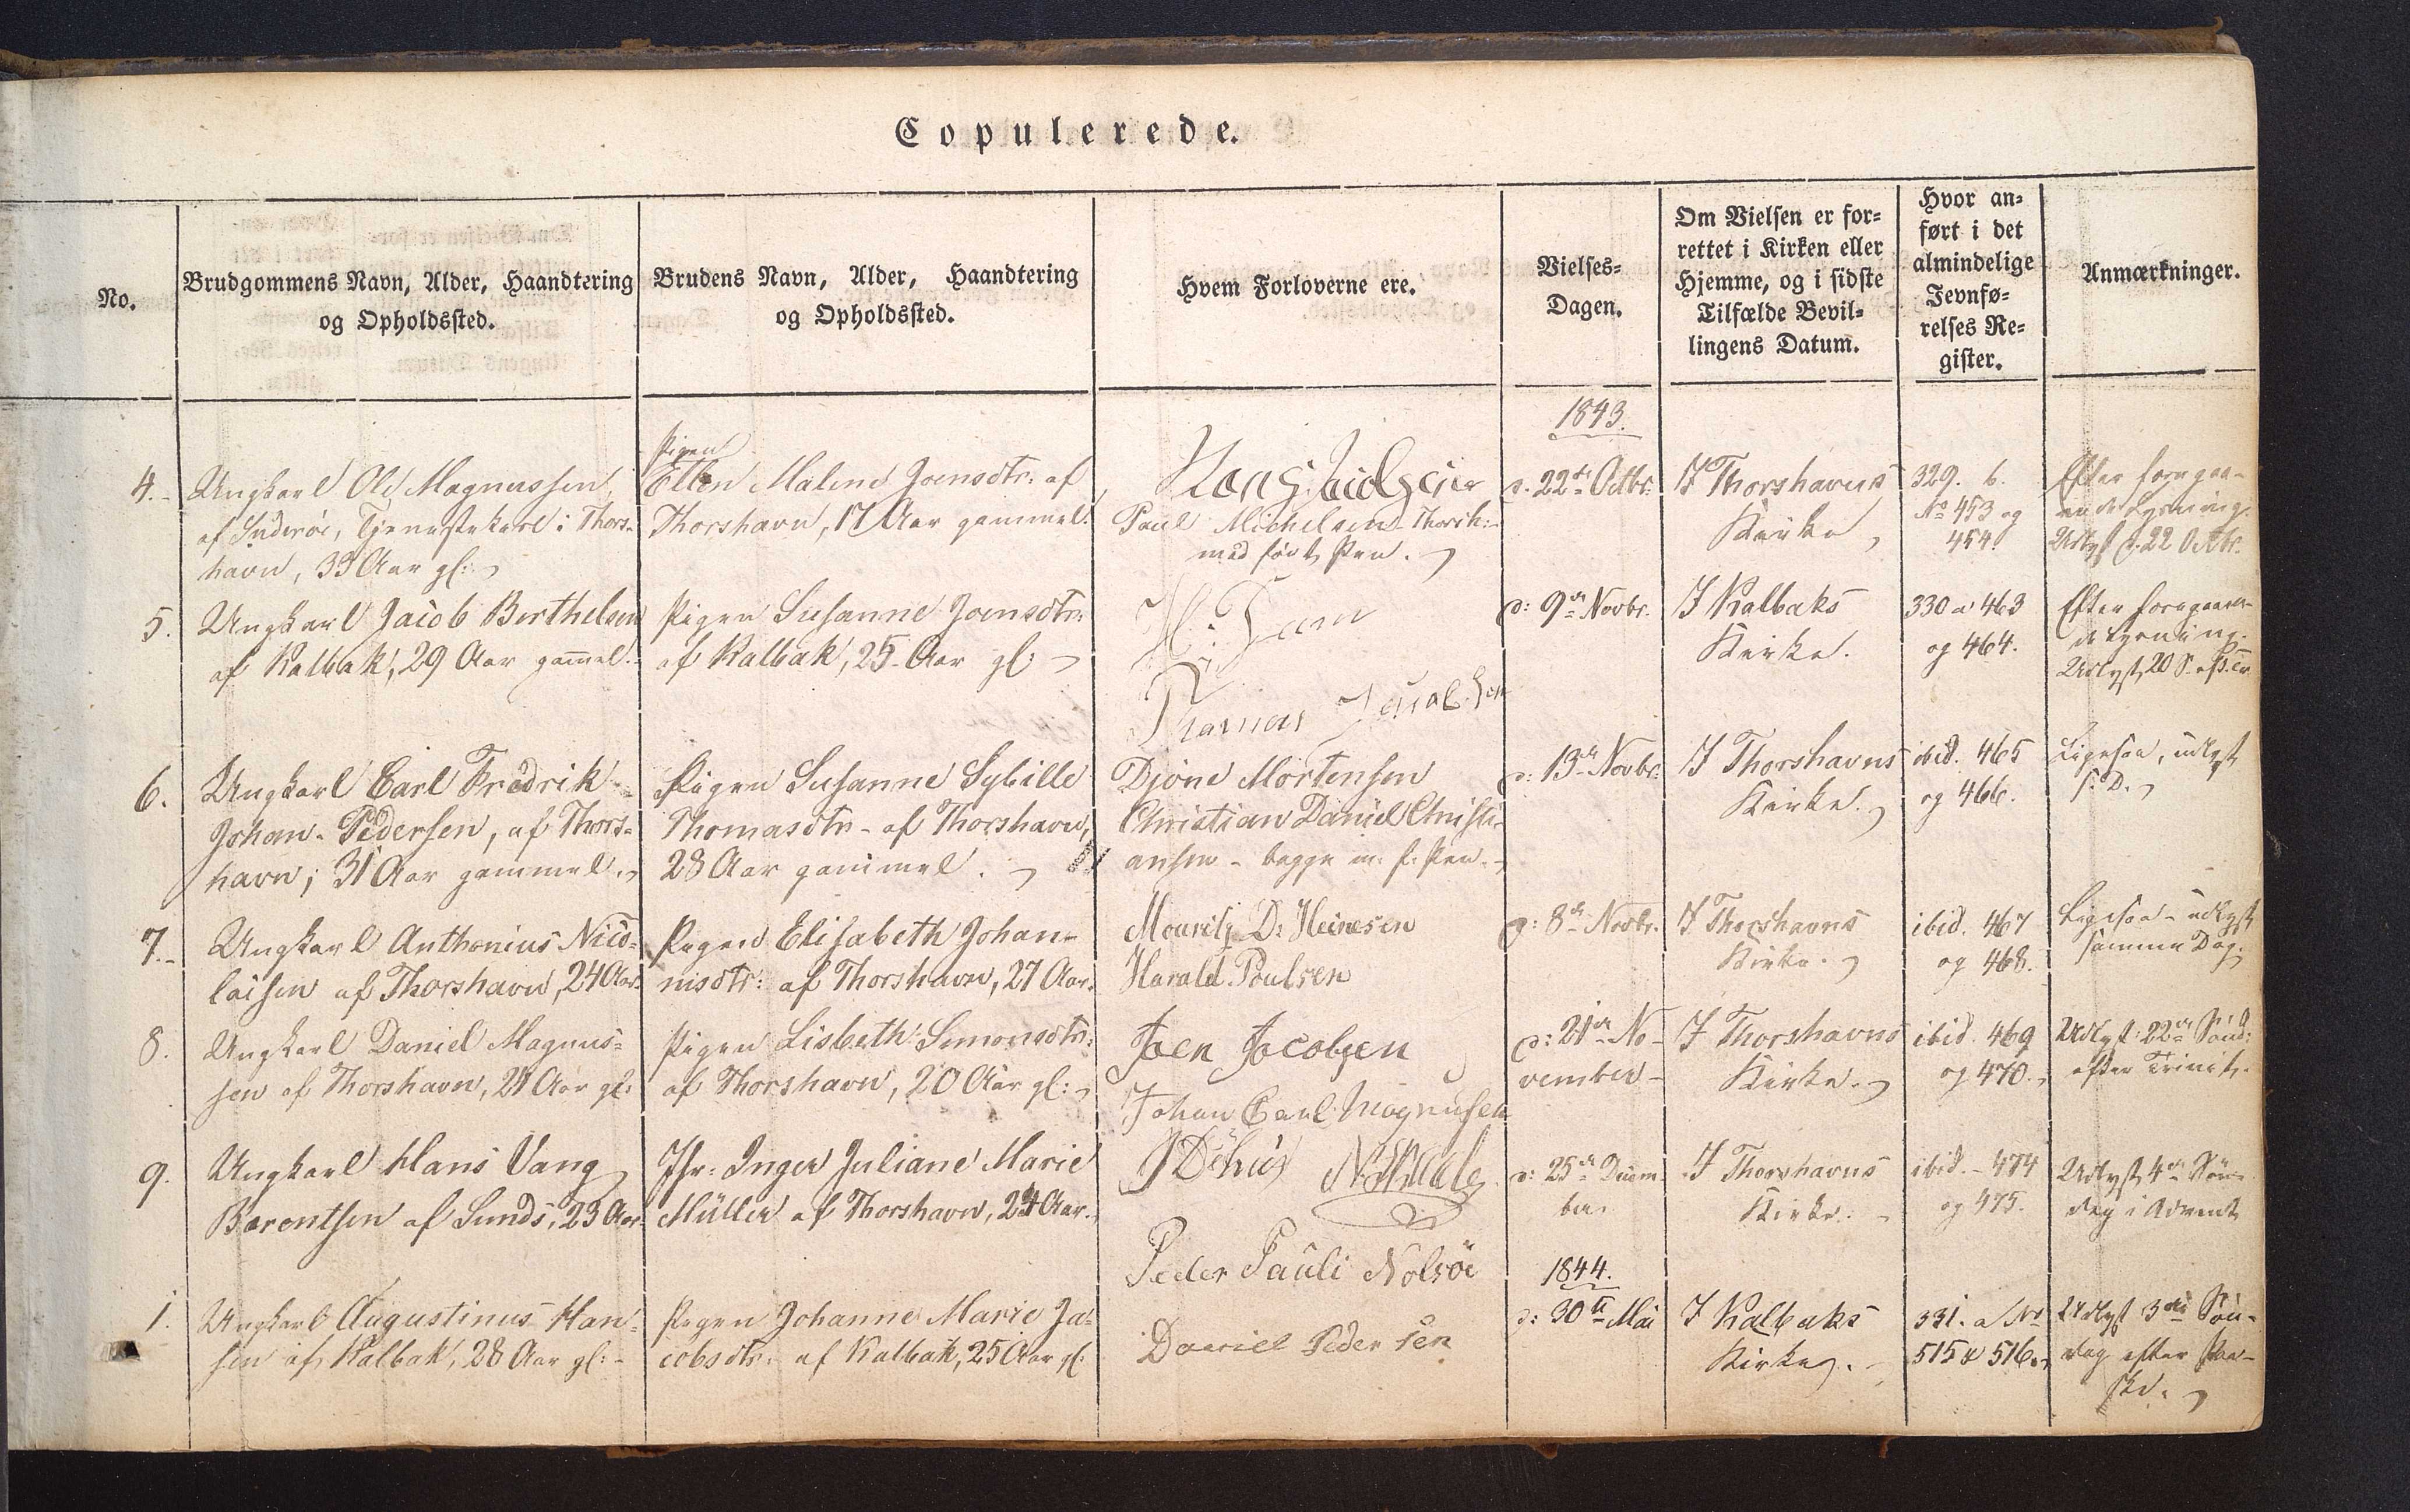 Copulerede.
No.
Brudgommens Navn, Alder, Haandtering
og Opholdssted.
Brudens Navn, Alder, Haandtering
og Opholdssted.
Hvem Forloverne ere.
Vielses-
Dagen.
Om Vielsen er for-
rettet i Kirken eller
Hjemme, og i sidste
Tilfælde Bevil-
lingens Datum.
Hvor an-
ført i det
almindelige
Jevnfø-
relses Re-
gister.
Anmærkninger.
1843.
4.
Ungkarl Ole Magnussen
af Suderöe, Tjenestekarl i Thors-
havn, 33 Aar gl:
Pigen
Ellen Malene Joensdtr. af
Thorshavn, 17 Aar gammel.
Paul Michelsen Thorsh:
med ført Pen.
d. 22de Octbr.
I Thorshavns
Kirke
329. b.
No 453 og
454.
Efter foregaa-
ende Lysning.
Udlyst d. 22 Octbr.
5.
Ungkarl Jacob Berthelsen
af Kalbak, 29 Aar gammel.
Pigen Susanne Joensdtr:
af Kalbak, 25 Aar gl:
H: Dam
Thomas Jacobsen
d: 9de Novbr.
I Kalbaks
Kirke.
330 a 463
og 464.
Efter foregaaen-
de Lysning.
Udlyst 20 S. eft. Tr
6.
Ungkarl Carl Fredrik
Johan Pedersen, af Thors-
havn; 31 Aar gammel.
Pigen Susanne Sybille
Thomasdtr. af Thorshavn,
28 Aar gammel.
Djone Mortensen
Christian Daniel Christi-
ansen - begge m. f. Pen.
d: 13de Novbr.
I Thorshavns
Kirke.
ibid. 465
og 466.
Ligesaa, udlyst
s. D.
7.
Ungkarl Anthonius Nico-
laisen af Thorshavn, 24 Aar.
Pigen Elisabeth Johan-
nisdtr: af Thorshavn, 27 Aar.
Mouritz D: Heinesen
Harald Poulsen
d: 8de Novbr.
I Thorshavns
Kirke.
ibid. 467
og 468.
Ligesaa - udlyst
samme Dag.
8.
Ungkarl Daniel Magnus-
sen af Thorshavn, 21 Aar gl:
Pigen Lisbeth Simonsdtr:
af Thorshavn, 20 Aar gl:
Joen Jacobsen
Johan Carl Magnussen
d: 21de No-
vember
I Thorshavns
Kirke.
ibid. 469
og 470.
Udlyst 22de Sönd:
efter Trinit.
9.
Ungkarl Hans Vang
Barentsen af Sunds, 23 Aar.
Jfr: Inger Juliane Marie
Müller af Thorshavn, 24 Aar.
d: 25de Decem-
ber
I Thorshavns
Kirke.
ibid. - 474
og 475.
Udlyst 4de Sön-
dag i Advent
1844.
1.
Ungkarl Augustinus Han-
sen af Kalbak, 28 Aar gl:
Pigen Johanne Marie Ja-
cobsdtr. af Kalbak, 25 Aar gl.
Peder Pauli Nolsöe
Daniel Pedersen
d: 30te Mai
I Kalbaks
Kirke.
331. a No
515 & 516.
Udlyst 3die Sön-
dag efter Paa-
ske.